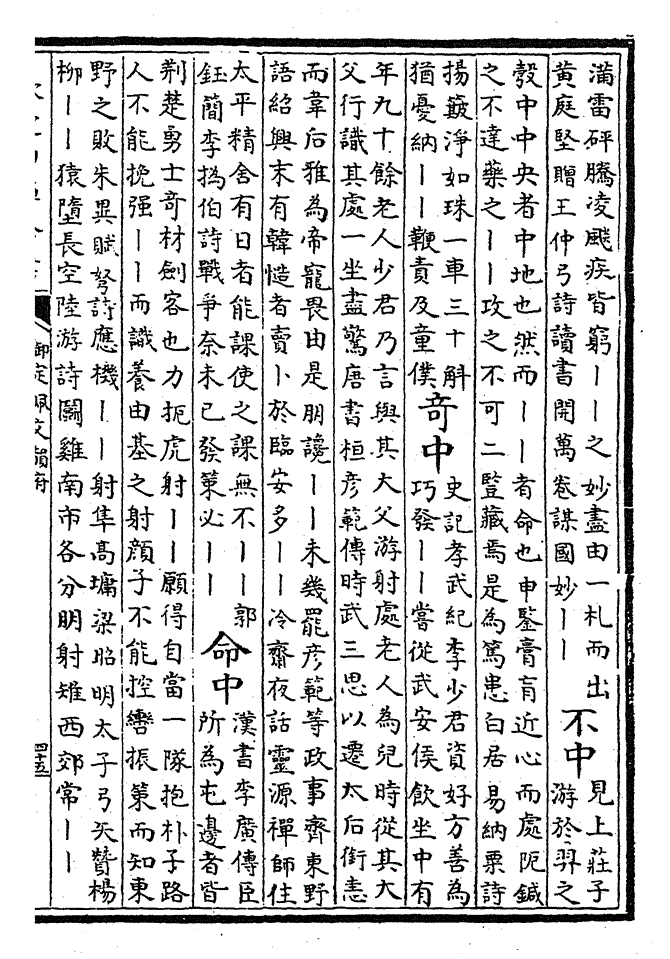 潚雷砰騰凌飈疾皆窮丨丨之妙盡由一札而出
黄庭堅贈王仲弓詩讀書開萬卷謀國妙丨丨
不中
見上莊子
游於羿之
彀中中央者中地也然而丨丨者命也申鑒膏肓近心而處阨鍼
之不達藥之丨丨攻之不可二豎藏焉是為篤患白居易納粟詩
揚簸淨如珠一車三十斛
猶憂納丨丨鞭責及童僕
奇中
史記孝武紀李少君資好方善為
巧發丨丨嘗從武安侯飲坐中有
年九十餘老人少君乃言與其大父游射處老人為兒時從其大
父行識其處一坐盡驚唐書桓彥範傳時武三思以遷太后銜恚
而韋后雅為帝寵畏由是朋讒丨丨未幾罷彥範等政事齊東野
語紹興末有韓慥者賣卜於臨安多丨丨冷齋夜話靈源禪師住
太平精舍有日者能課使之課無不丨丨郭
鈺簡李撝伯詩戰爭奈未已發策必丨丨
命中
漢書李廣傳臣
所為屯邊者皆
荆楚勇士奇材劍客也力扼虎射丨丨願得自當一隊抱朴子路
人不能挽强丨丨而識養由基之射顔子不能控轡振策而知東
野之敗朱異賦弩詩應機丨丨射隼高墉梁昭明太子弓矢贊楊
柳丨丨猿墮長空陸游詩鬭雞南市各分明射雉西郊常丨丨
御定佩文韻府